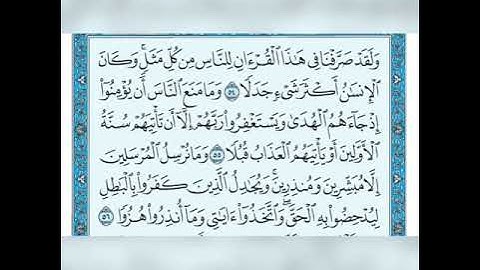 وَلَقَدْ صَرَّفْنَا فِي هَٰذَا ٱلْقُرْءَانِ لِلنَّاسِ مِن كُلِّ مَثَلٍ ۚ وَكَانَ
ٱلْإِنسَٰنُ أَكْثَرَ شَىْءٍ جَدَلًا ٥٤ وَمَا مَنَعَ ٱلنَّاسَ أَن يُؤْمِنُوٓا۟
إِذْ جَآءَهُمُ ٱلْهُدَىٰ وَيَسْتَغْفِرُوا۟ رَبَّهُمْ إِلَّآ أَن تَأْتِيَهُمْ سُنَّةُ
ٱلْأَوَّلِينَ أَوْ يَأْتِيَهُمُ ٱلْعَذَابُ قُبُلًا ٥٥ وَمَا نُرْسِلُ ٱلْمُرْسَلِينَ
إِلَّا مُبَشِّرِينَ وَمُنذِرِينَ ۚ وَيُجَٰدِلُ ٱلَّذِينَ كَفَرُوا۟ بِٱلْبَٰطِلِ
لِيُدْحِضُوا۟ بِهِ ٱلْحَقَّ ۖ وَٱتَّخَذُوٓا۟ ءَايَٰتِى وَمَآ أُنذِرُوا۟ هُزُوًا ٥٦